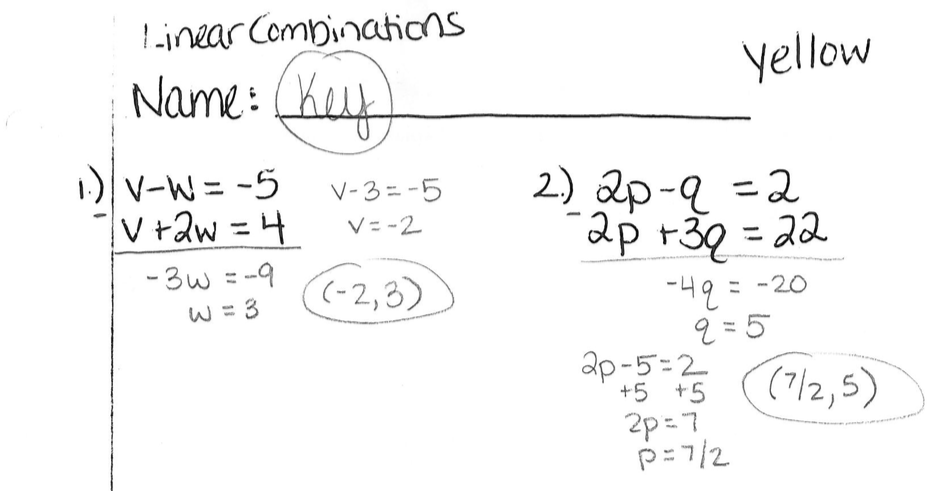 Linear Combinations
yellow
Name: Key
1.) v-w = -5
- v+2w = 4
-3w = -9
w = 3
v-3 = -5
v = -2
(-2, 3)
2.) 2p-q = 2
- 2p+3q = 22
-4q = -20
q = 5
2p-5=2
+5 +5
2p=7
p=7/2
(7/2, 5)